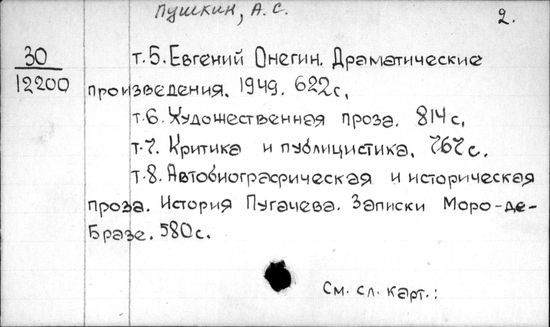 Пушкин, А. С.
2.
30
12200
т.5. Евгений Онегин. Драматические
произведения. 1949. 622с.
т.6. Художественная проза. 814с.
т.7. Критика и публицистика. 767с.
т.8. Автобиографическая и историческая
проза. История Пугачева. Записки Моро-де-
Бразе. 580с.
См. сл. карт.: